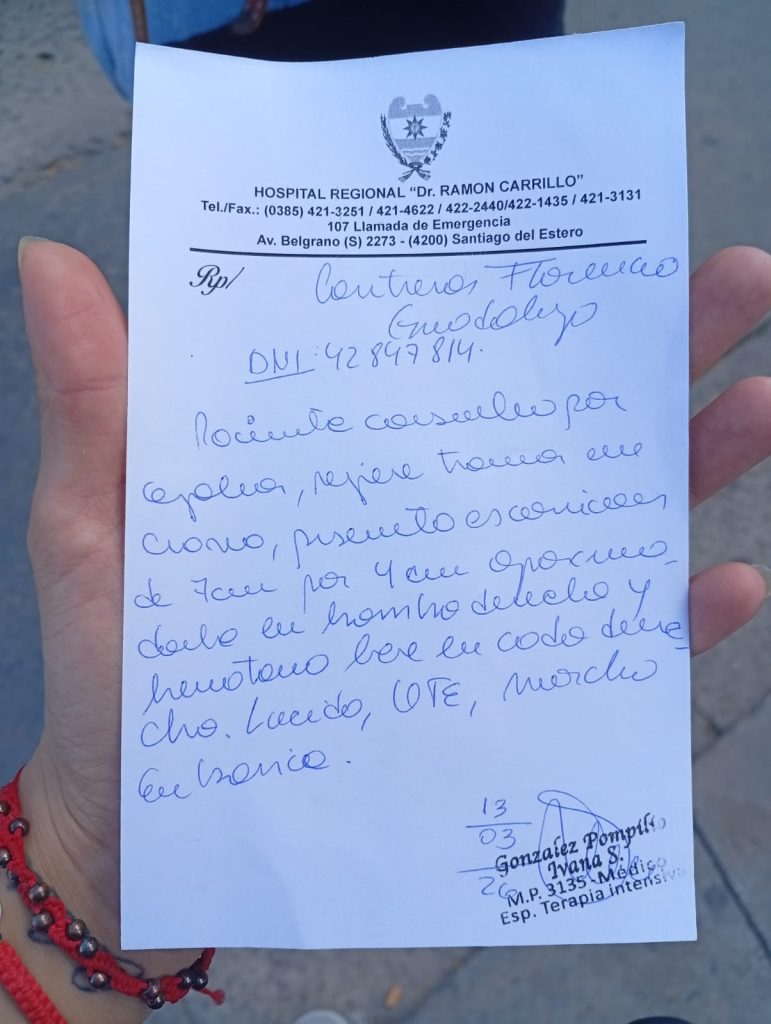 HOSPITAL REGIONAL “Dr. RAMON CARRILLO”
Tel./Fax.: (0385) 421-3251 / 421-4622 / 422-2440/422-1435 / 421-3131
107 Llamada de Emergencia
Av. Belgrano (S) 2273 - (4200) Santiago del Estero
Rp/
Contreras
DNI: 42847814.
Paciente consulta por
cefalea, refiere trauma en
craneo, presenta escoriaciones
de 7cm por 4cm aproxima-
do en hombro derecho y
hematoma leve en codo dere-
cho. Lucido, OTE, marcha
Eubasica.
13
03
26
Gonzalez Pompilio
Ivana S.
M.P. 3135 - Médico
Esp. Terapia intensiva